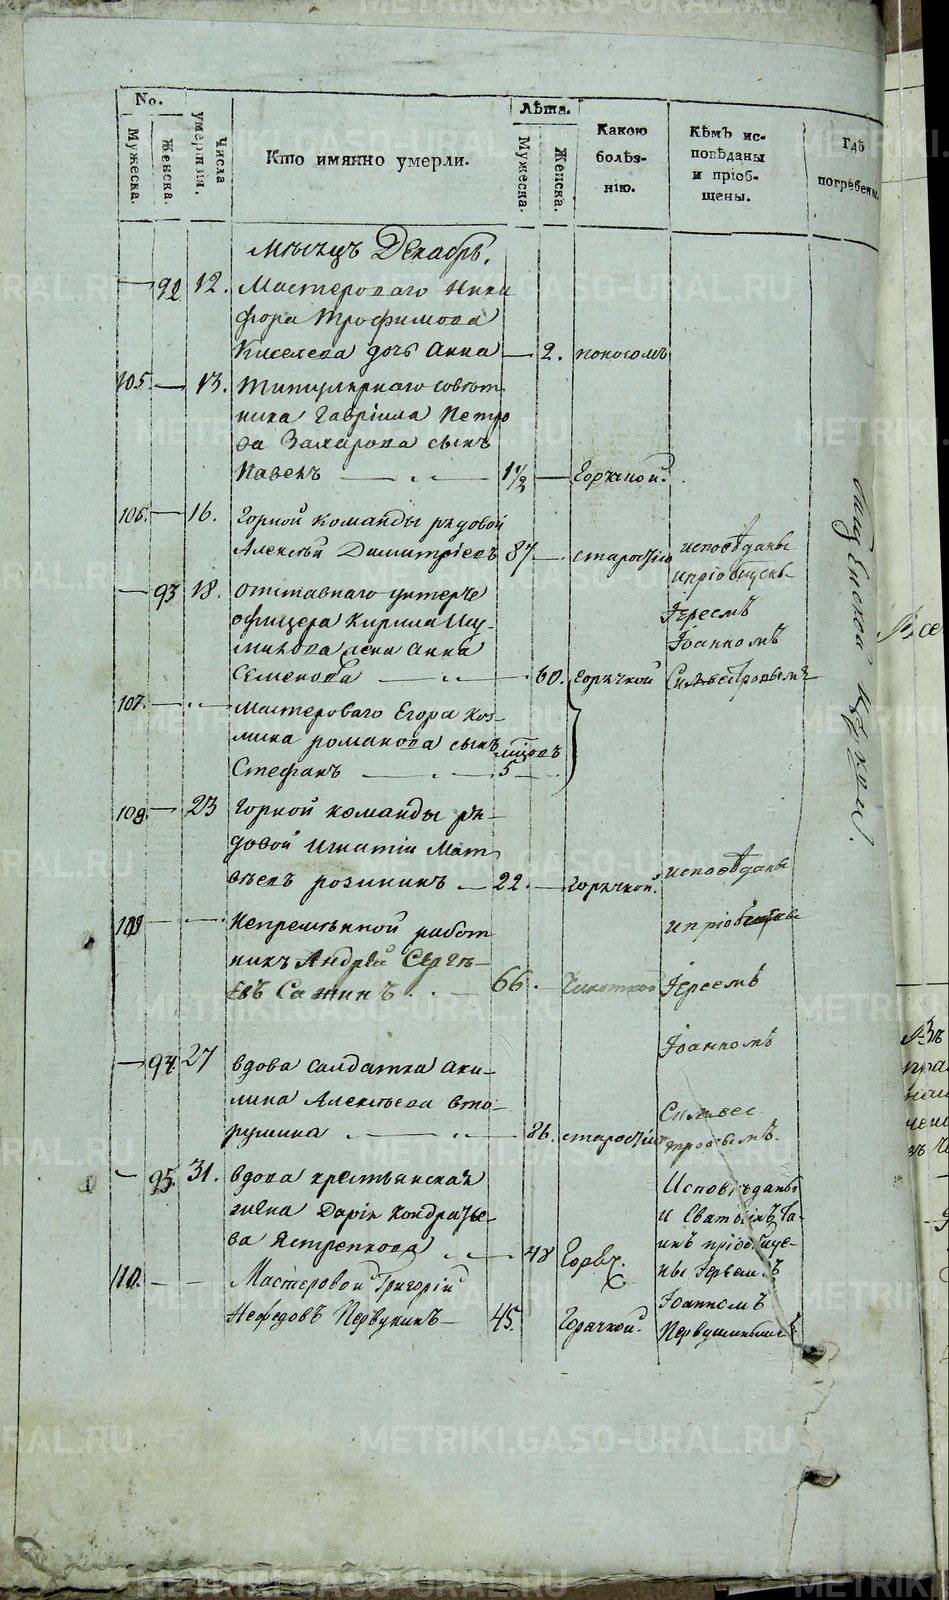 No.
Мужеска.
Женска.
Числа умерiпзiя.
Кто имянно умерли.
Лѣта.
Мужеска.
Женска.
Какою
болѣз-
нiю.
Кѣмъ ис-
повѣданы
и прiоб-
щены.
Гдѣ
погребены
Мѣсяцъ Декабрь.
— 92 12. Мастероваго Ники
фора Трофимова
Киселева дочь Анна — 2. поносомъ
105. — 13. Титулярнаго совѣт
ника Гаврiила Петро
ва Захарова сынъ
Павелъ — 1 1/2 — Горячкой.
106. — 16. Горной команды рядовой
Алексѣй Димитрiевъ 87 — старостiю исповѣданы
и прiобщены
— 93 18. отставнаго унтеръ
офицера Кирила
жена Анна
Семенова — 60. Горячкой
Iереемъ
Iоанномъ
Сильвестровымъ
107. — Мастероваго Егора Коз-
мина романова сынъ
Стефанъ — 5 мѣсяцовъ
108. — 23 Горной команды ря-
довой Игнатiй Мат
вѣевъ розининъ — 22. — Горячкой. исповѣданы
109 — Непремѣнной работ
никъ Андрей Сергѣ-
евъ Сажинъ — 66. — Чихоткой
и прiобщены
Iереемъ
Iоанномъ
— 94. 27 вдова Солдатка Аки-
лина Алексѣева Вто-
рушина — 86. старостiю
Сильвес
тровымъ.
— 95. 31. вдова крестьянская
жена Дарiя Кондратье-
ва Ястребкова — 48 Горяч.
Исповѣданы
и Святыхъ Та-
инъ прiобще-
ны Iереемъ
Iоанномъ
Первушинымъ
110. — — Мастеровой Григорiй
Нефедовъ Первухинъ — 45. Горячкой.
METRIKI.GASO-URAL.RU